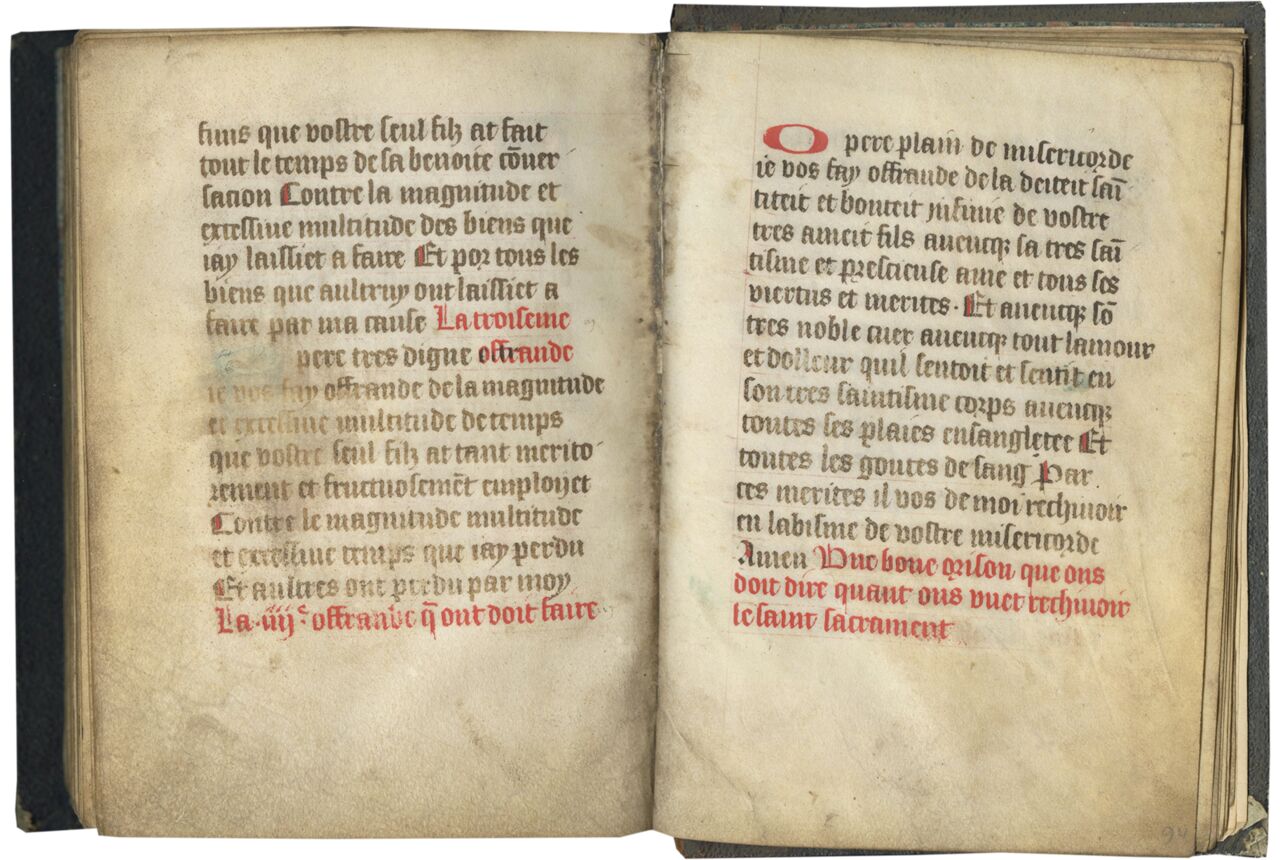 funs que vostre seul filz at fait
tout le temps de sa benoite cōuer
sacion Contre la magnitude et
excessiue multitude des biens que
iay laissiet a faire Et por tous les
biens que aultruy ont laissiet a
faire par ma cause La troiseme
pere tres digne offrande
ie vos fay offrande de la magnitude
et excessiue multitude de temps
que vostre seul filz at tant merito
rement et fructuosemēt employet
Contre le magnitude multitude
et excessiue temps que iay perdu
Et aultres ont perdu par moy
La .iiij.e offrande q̄ ont doit faire
O pere plain de misericorde
ie vos fay offrande de la deiteit sāi
titeit et bonteit infinie de vostre
tres ameit fils auencq sa tres sāi
tisme et prescieuse ame et tous ses
viertus et merites. Et auencq sō
tres noble cuer auencq tout lamour
et dolleur quil sentoit et sentit en
son tres saintisme corps auencq
toutes ses plaies ensangletee Et
toutes les goutes de sang Par
ces merites il vos de moi rechiuoir
en labisme de vostre misericorde
Amen Vne bone orison que ons
doit dire quant ons vuet rechiuoir
le saint sacrament
94